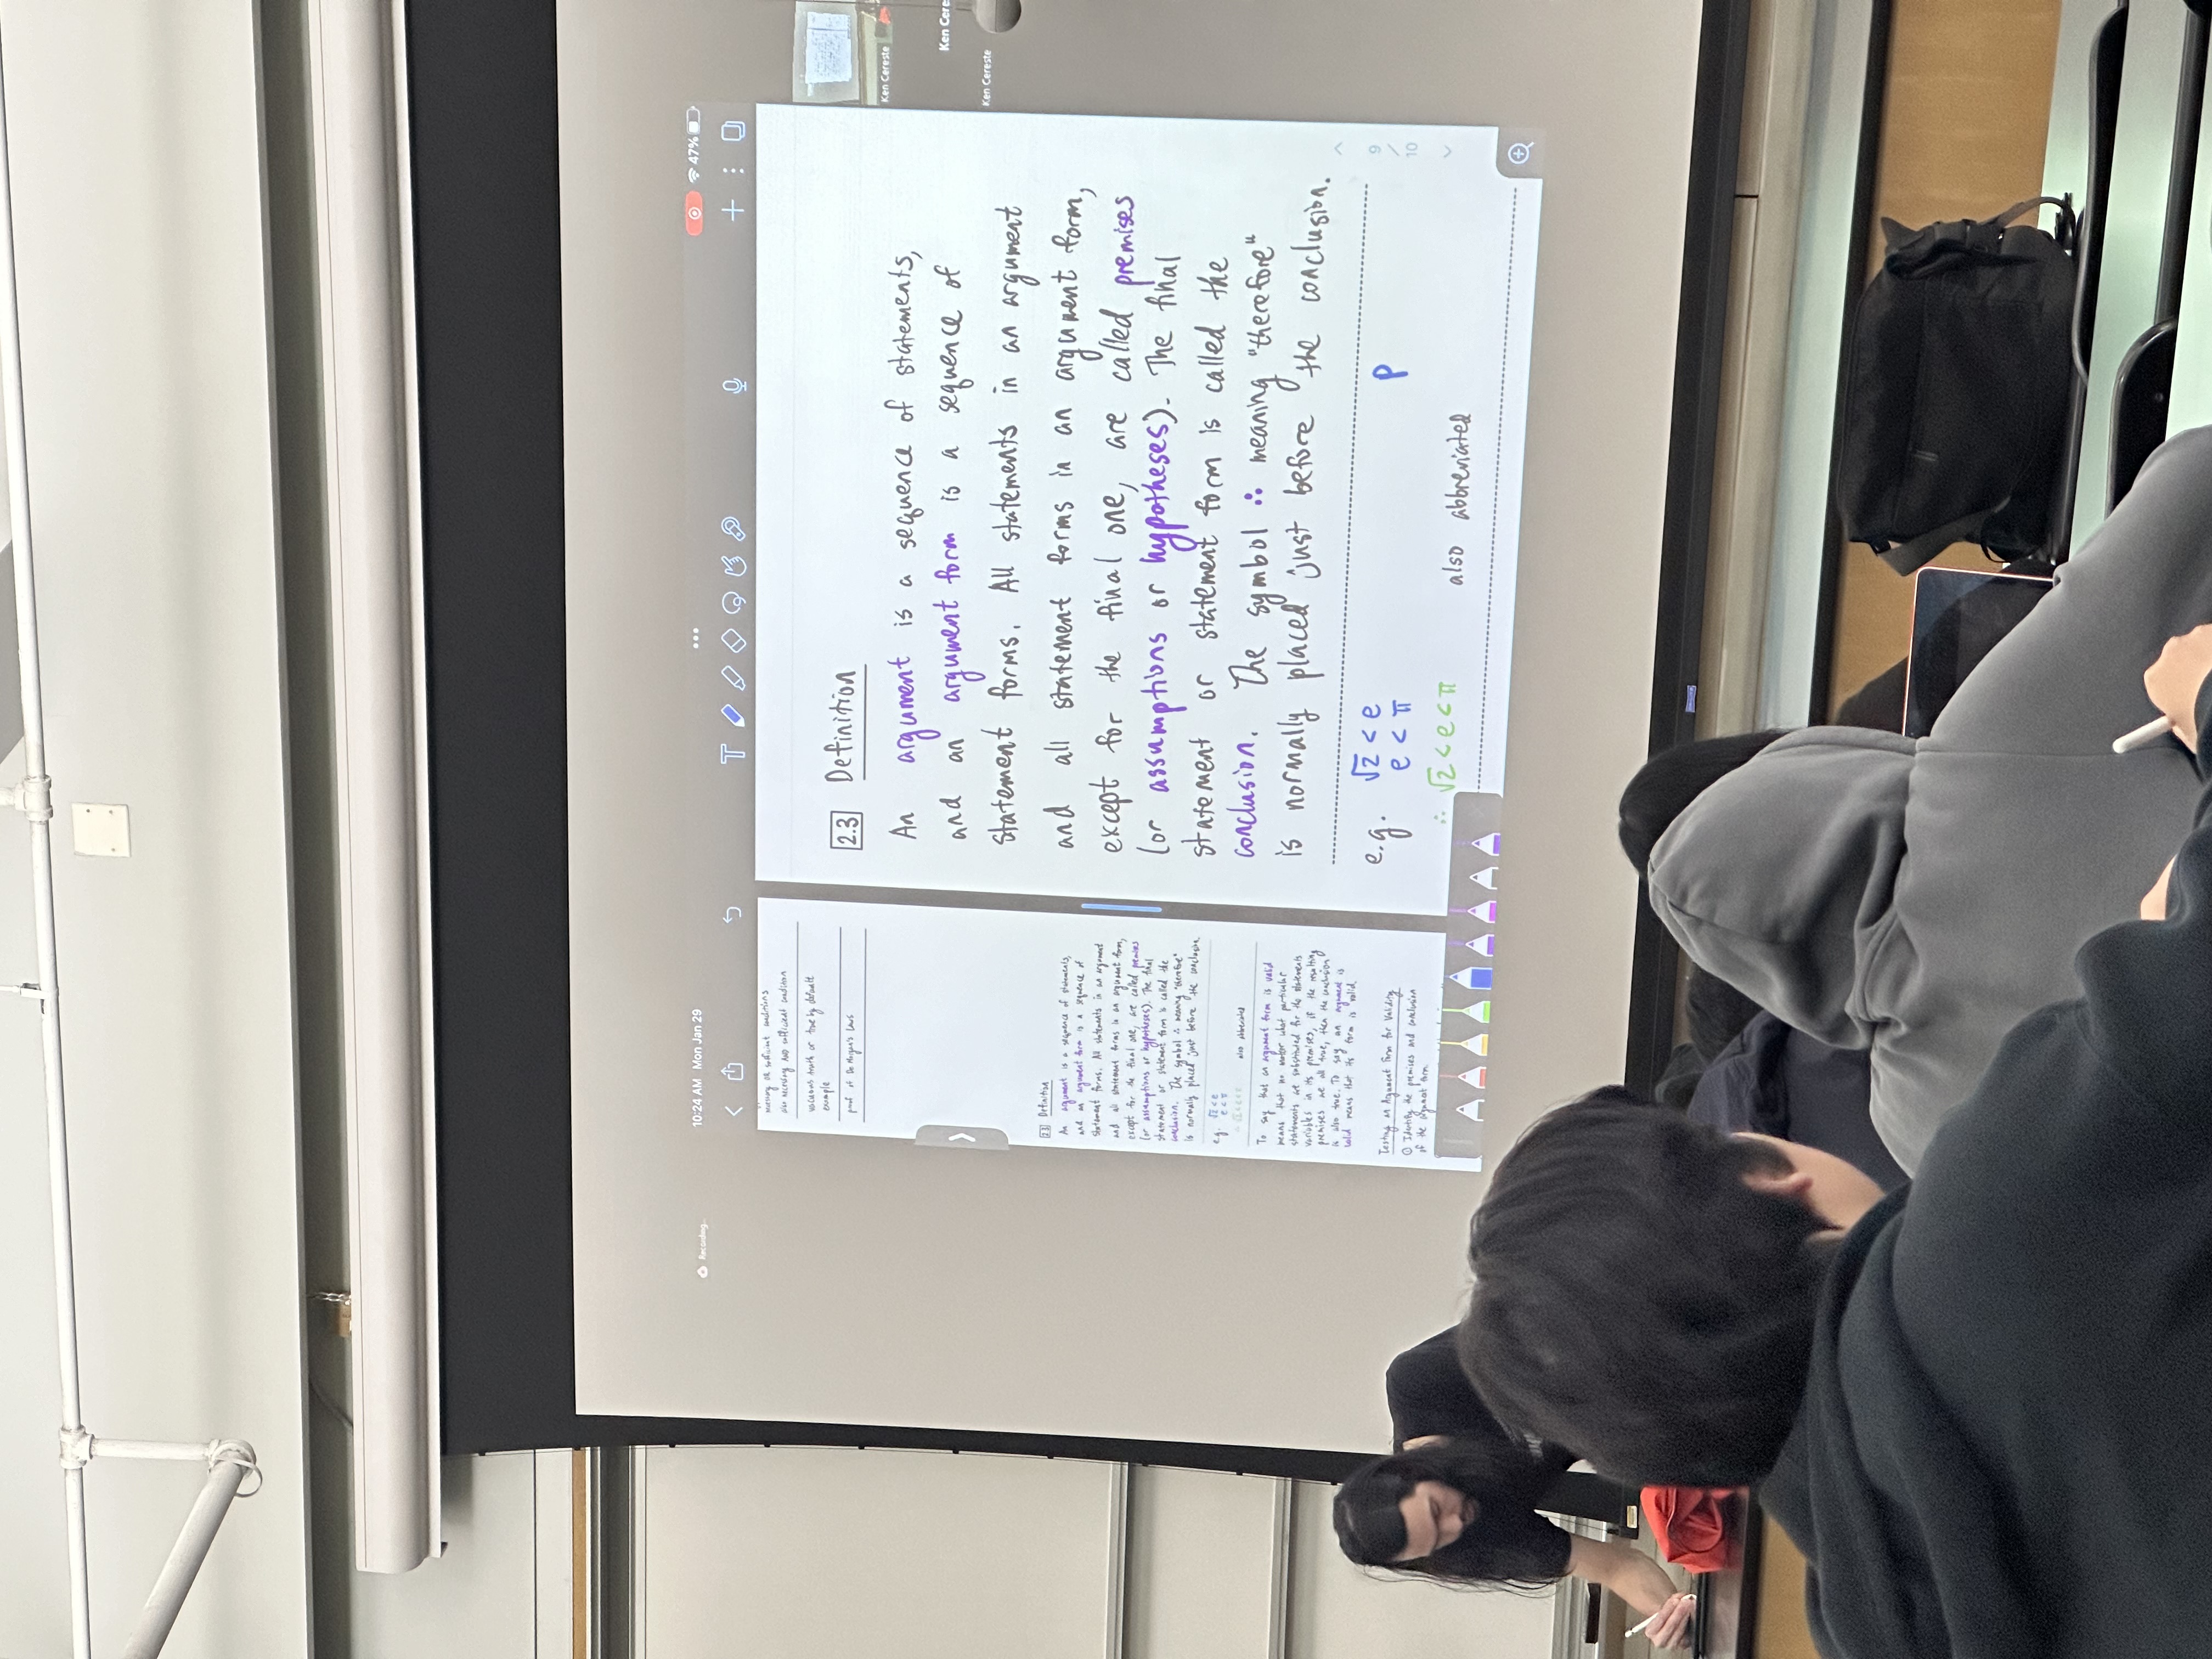 Recording...
10:24 AM Mon Jan 29
47%
necessary OR sufficient conditions
also necessary AND sufficient condition
vacuous truth or true by default
example
proof of De Morgan's Laws
2.3 Definition
An argument is a sequence of statements,
and an argument form is a sequence of
statement forms. All statements in an argument
and all statement forms in an argument form,
except for the final one, are called premises
(or assumptions or hypotheses). The final
statement or statement form is called the
conclusion. The symbol ∴ meaning "therefore"
is normally placed just before the conclusion.
e.g. √2 < e
e < π
∴ √2 < e < π also abbreviated
To say that an argument form is valid
means that no matter what particular
statements are substituted for the statements
variables in its premises, if the resulting
premises are all true, then the conclusion
is also true. To say an argument is
valid means that its form is valid.
Testing an Argument Form for Validity
① Identify the premises and conclusion
of the argument form.
2.3 Definition
An argument is a sequence of statements,
and an argument form is a sequence of
statement forms. All statements in an argument
and all statement forms in an argument form,
except for the final one, are called premises
(or assumptions or hypotheses). The final
statement or statement form is called the
conclusion. The symbol ∴ meaning "therefore"
is normally placed just before the conclusion.
e.g. √2 < e P
e < π
∴ √2 < e < π also abbreviated
9
/
10
Ken Cereste
Ken Cere
Ken Cereste